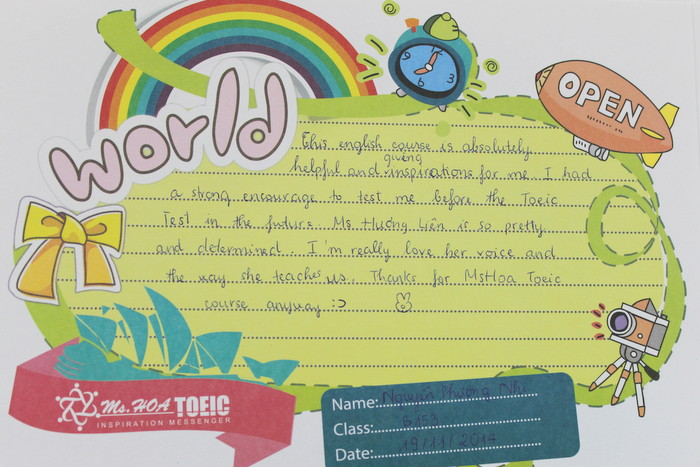 World
OPEN
This english course is absolutely
giving
helpful and inspirations for me. I had
a strong encourage to test me before the Toeic
Test in the future. Ms. Hương Liên is so pretty
and determined. I'm really love her voice and
the way she teaches us. Thanks for MsHoa Toeic
course anyway :>
Ms. HOA TOEIC
INSPIRATION MESSENGER
Name: Nguyễn Phương Nhi
Class: S153
Date: 19/11/2014